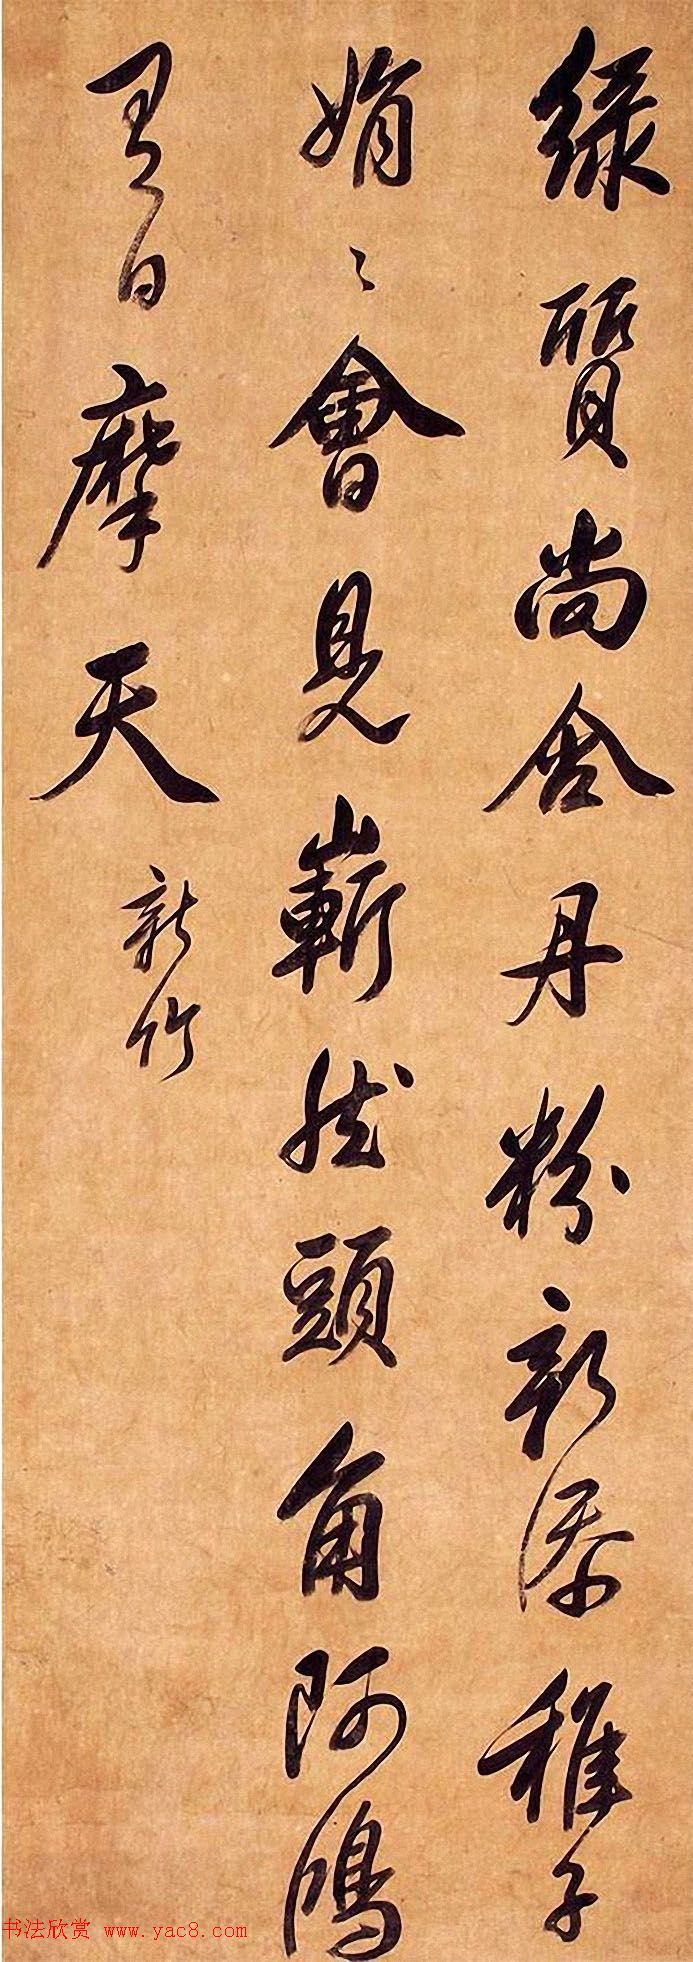 綠質尚含丹粉新添稚子
娟〻會見嶄然頭角阿鴻
日摩天 新竹
书法欣赏 www.yac8.com